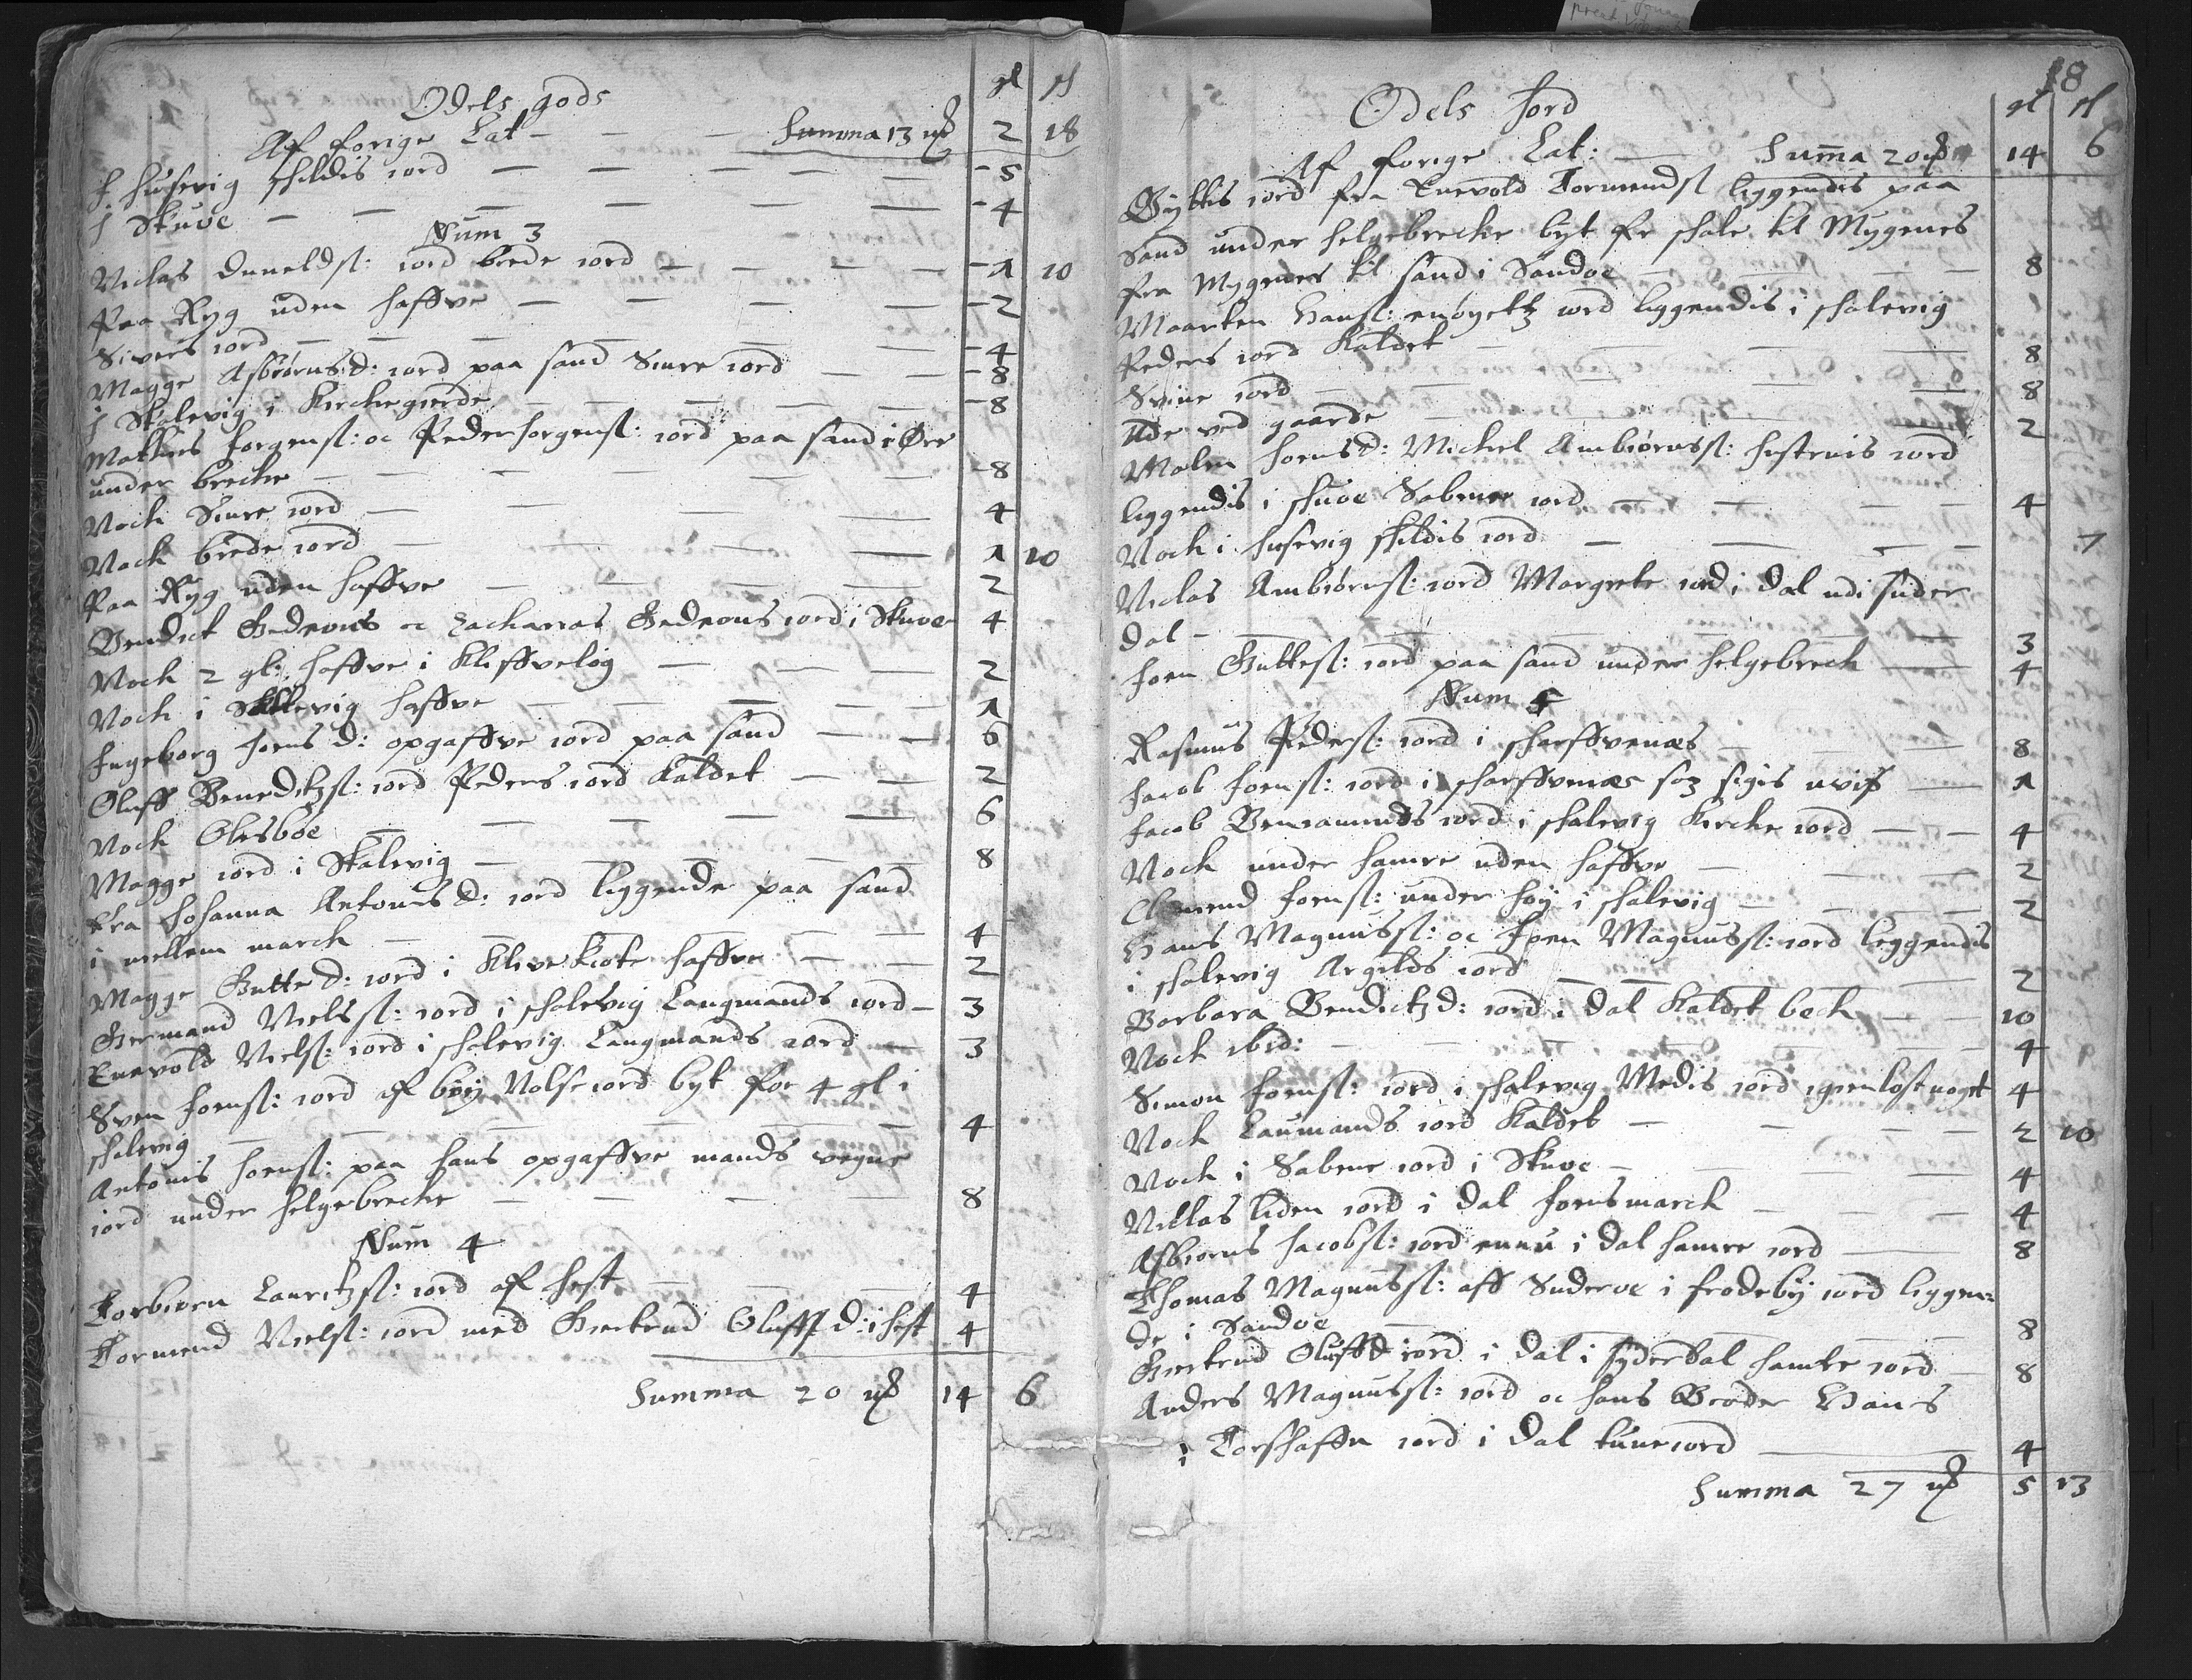 Odels gods gl sl
Af forige Lat — — — Summa 13 mꝶ 2 18
J husevig skildis iord — — — — — 5
J Skuoe — — — — — 4
Num 3
Niclas Enneldsl: iord brede iord — — — — 1 10
Paa Ryg uden haffve — — — — 2
Sivers iord — — — — 4
Magge Asbiørns d: iord paa sand Siure iord — — 8
J Skalevig i Kirchegierde — — — — 8
Matties Jorgensl: oc Peder Jorgensl: iord paa sand i Øre
under breche — — — — 8
Noch Siure iord — — — — 4
Noch brede iord — — — — 1 10
Paa Ryg uden haffve — — — — 2
Bendict Gedeons oc Zacharias Gedeons iord i Skuoe 4
Noch 2 gl: haffve i Kliffvelog — — 2
Noch i Skalevig haffve — — — — 1
Ingeborg Joens d: opgaffve iord paa sand — — 6
Oluff Beneditzsl: iord Peders iord kaldet — — 2
Noch Olesbøe — — — — 6
Magge iord i Skalevig — — — — 8
Fra Johanna Antonis d: iord liggende paa sand
i mellem march — — — — 4
Magge Gutte d: iord i Klivekiote haffve — — 2
Giermand Nielssl: iord i skalevig Laugmands iord — 3
Enevold Nielsl: iord i skalevig Laugmands iord — 3
Sven Joensl: iord af bøy Nolse iord byt for 4 gl i
skalevig — — — — 4
Antonis Joensl: paa hans opgaffve mands vegne
iord under helgebreche — — — — 8
Num 4
Torbiørn Lauritzsl: iord af hest — — — 4
Tormend Nielsl: iord med Giertrud Oluffs d: i hest 4
Summa 20 mꝶ 14 6
18
Odels Jord gl sl
Af forige Lat: — Summa 20 mꝶ 14 6
Byttis iord fra Enevold Tormendsl liggendis paa
Sand under helgebreche byt fr skale til Mygenes
fra Mygenes til sand i Sandoe — — — 8
Maarten Hansl: iord liggendis i skalevig
Peders iord kaldet — — — 8
Svine iord — — — — 8
Ude ved gaarde — — — 2
Malen Joensd: Michel Ambiørnssl: hustruis iord
liggendis i skuoe Sabenes iord — — — 4
Noch i husevig skildis iord — — — — 7
Niclas Ambiørnsl: iord Margrete iord i Dal udi suder
dal — — — — 3
Joen Guttesl: iord paa sand under helgebrech — 4
Num 5
Rasmus Pedersl: iord i skarffvenæs — — 8
Jacob Joensl: iord i skarffvenæs som sigis uvis — 1
Jacob Beniaminds iord i skalevig Kirche iord — — 4
Noch under hamre uden haffve — — — 2
Clemend Joensl: under høy i skalevig — — — 2
Hans Magnussl: oc Joen Magnussl: iord liggendis
i skalevig Argilds iord — — — 2
Barbara Bendictzd: iord i Dal kaldet bech — — 10
Noch ibid: — — — — 4
Simon Joensl: iord i skalevig Medis iord igienlost 4
Noch Laumands iord kaldet — — — 2 10
Noch i Sabene iord i Skuoe — — — 4
Niclas liden iord i Dal Joensmarch — — — 4
Asbiorns Jacobsl: iord ennu i Dal hamre iord — — 8
Thomas Magnussl: aff Suderoe i frodeby iord liggen=
de i Sandoe — — — 8
Giertrud Oluffsd iord i Dal i syderdal hamre iord — 8
Anders Magnussl: iord oc hans Broder Hans
i Torshaffn iord i Dal tune iord — — 4
Summa 27 mꝶ 5 13